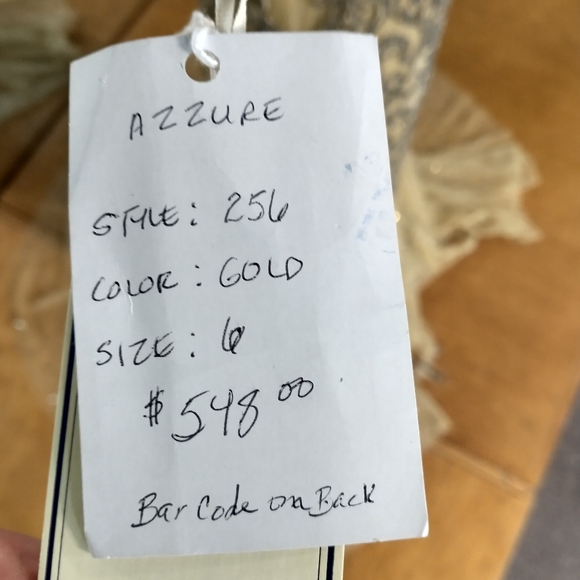 AZZURE
STYLE: 256
COLOR: GOLD
SIZE: 6
$548.00
Bar Code on Back